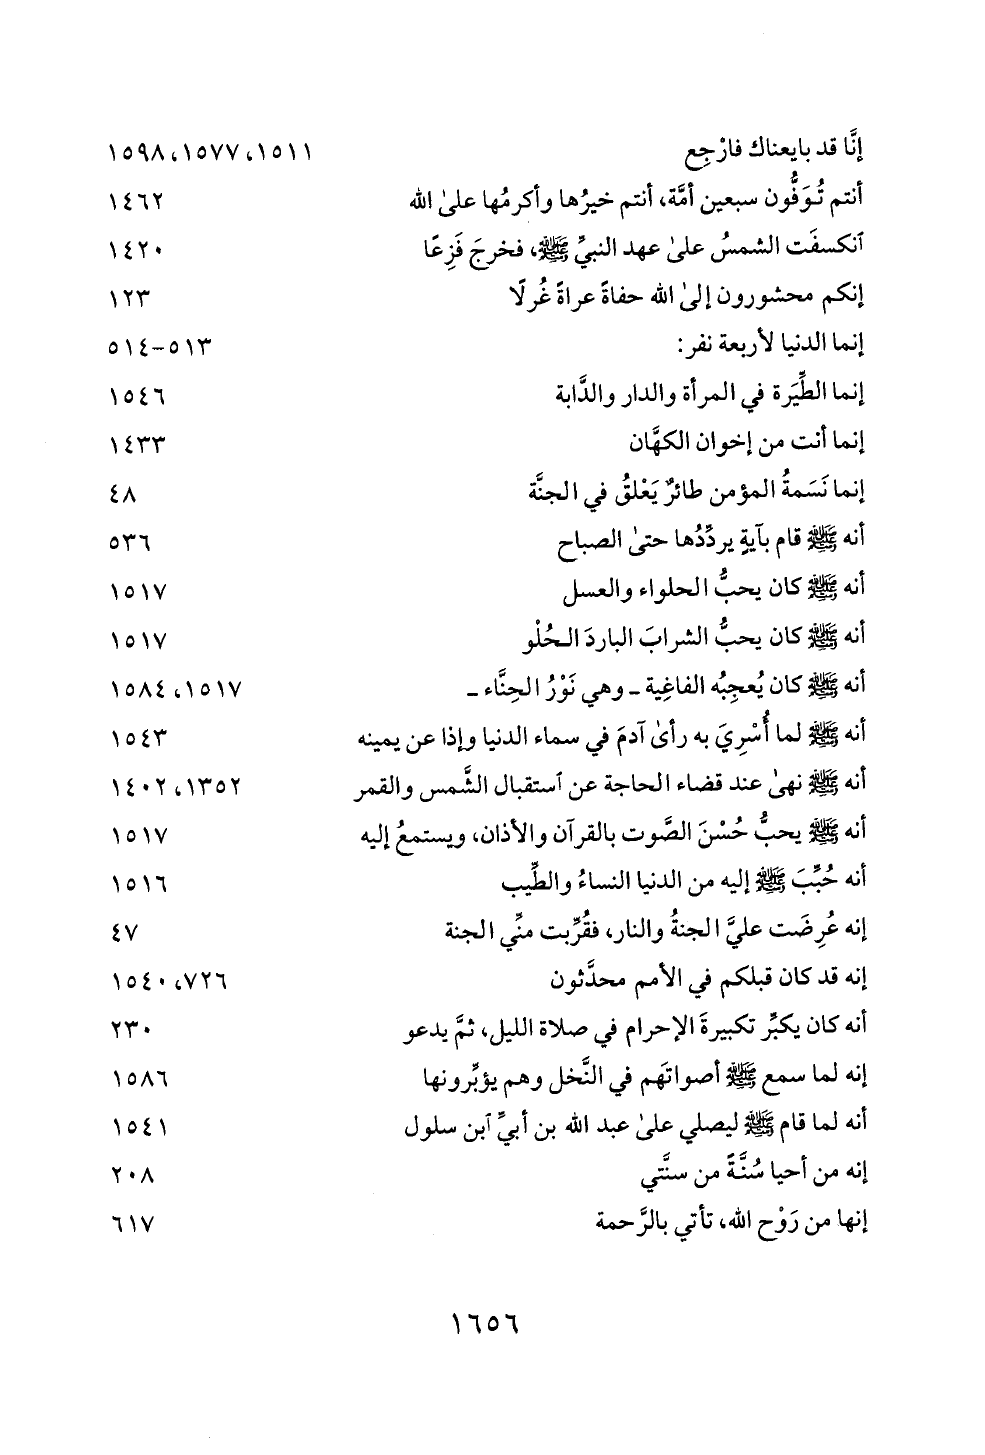 إنَّا قد بايعناك فارْجِع ١٥١١، ١٥٧٧، ١٥٩٨
أنتم تُوَفُّون سبعين أمَّة، أنتم خيرُها وأكرمُها علىٰ الله ١٤٦٢
ٱنكسفَت الشمسُ علىٰ عهد النبيِّ ﷺ، فخرجَ فَزِعًا ١٤٢٠
إنكم محشورون إلىٰ الله حفاةً عراةً غُرلًا ١٢٣
إنما الدنيا لأربعة نفر: ٥١٣-٥١٤
إنما الطِّيَرة في المرأة والدار والدَّابة ١٥٤٦
إنما أنت من إخوان الكهَّان ١٤٣٣
إنما نَسَمةُ المؤمن طائرٌ يَعْلقُ في الجنَّة ٤٨
أنه ﷺ قام بآيةٍ يردِّدُها حتىٰ الصباح ٥٣٦
أنه ﷺ كان يحبُّ الحلواء والعسل ١٥١٧
أنه ﷺ كان يحبُّ الشرابَ الباردَ الـحُلْو ١٥١٧
أنه ﷺ كان يُعجِبُه الفاغِية ـ وهي نَوْرُ الحِنَّاء ـ ١٥١٧، ١٥٨٤
أنه ﷺ لما أُسْرِيَ به رأىٰ آدمَ في سماء الدنيا وإذا عن يمينه ١٥٤٣
أنه ﷺ نهىٰ عند قضاء الحاجة عن ٱستقبال الشَّمس والقمر ١٣٥٢، ١٤٠٢
أنه ﷺ يحبُّ حُسْنَ الصَّوت بالقرآن والأذان، ويستمعُ إليه ١٥١٧
أنه حُبِّبَ ﷺ إليه من الدنيا النساءُ والطِّيب ١٥١٦
إنه عُرِضَت عليَّ الجنةُ والنار، فقُرِّبت منِّي الجنة ٤٧
إنه قد كان قبلكم في الأمم محدَّثون ٧٢٦، ١٥٤٠
أنه كان يكبِّر تكبيرةَ الإحرام في صلاة الليل، ثمَّ يدعو ٢٣٠
إنه لما سمع ﷺ أصواتَهم في النَّخل وهم يؤبِّرونها ١٥٨٦
أنه لما قام ﷺ ليصلي علىٰ عبد الله بن أبيِّ ٱبن سلول ١٥٤١
إنه من أحيا سُنَّةً من سنَّتي ٢٠٨
إنها من رَوْح الله، تأتي بالرَّحمة ٦١٧
١٦٥٦